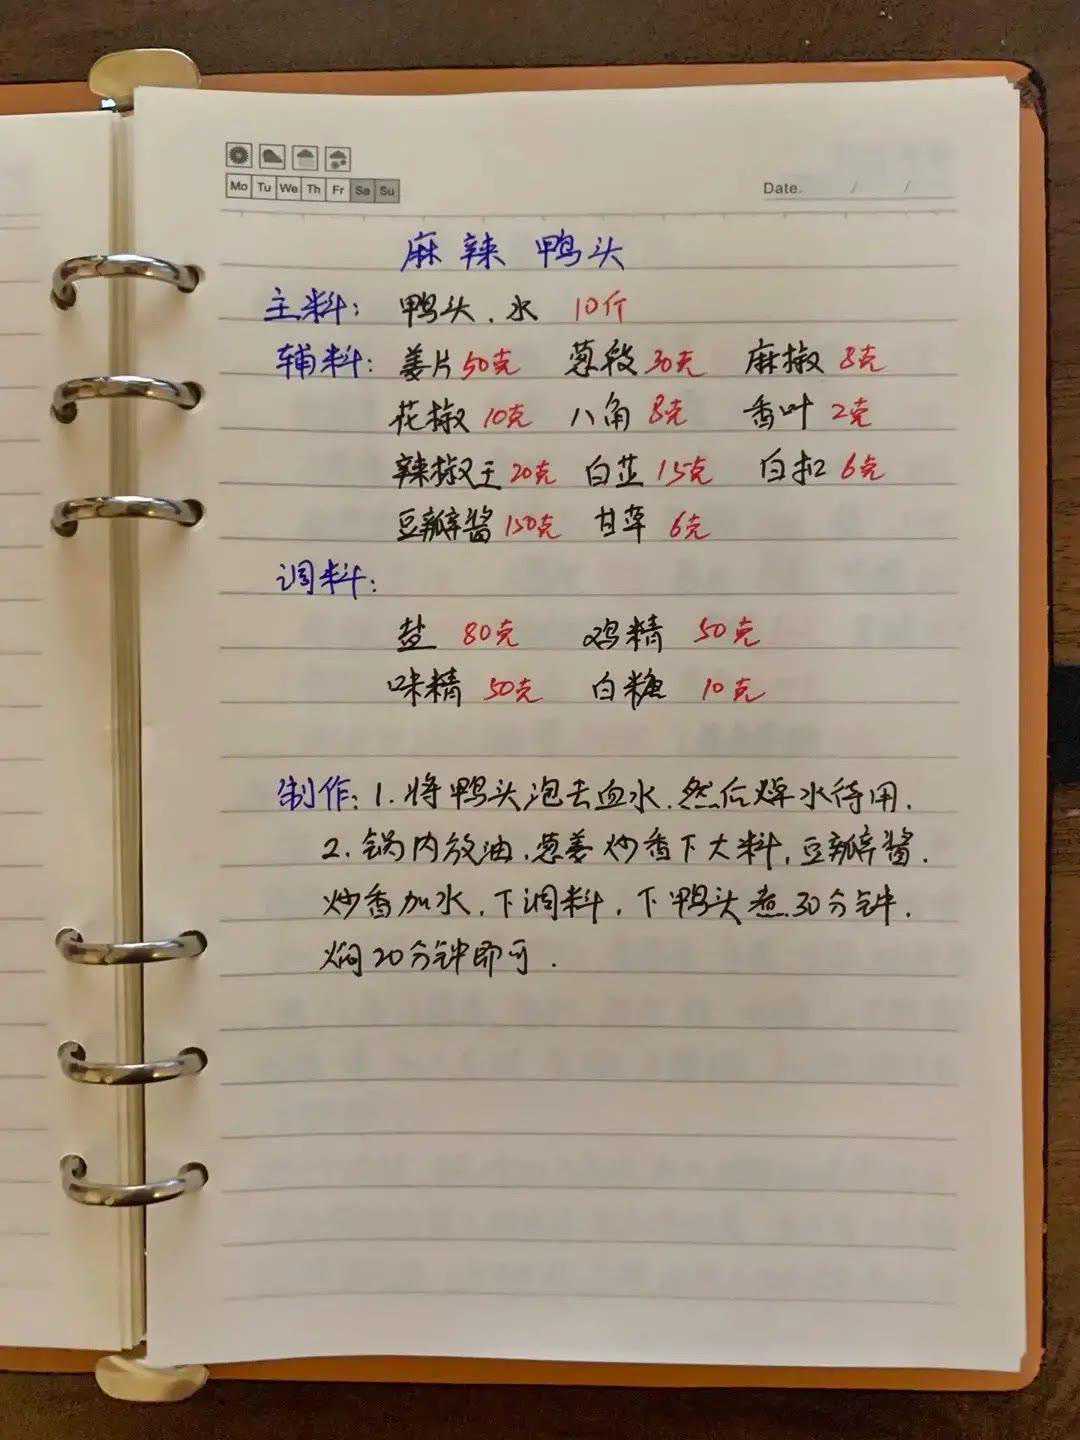 Mo Tu We Th Fr Sa Su
Date. / /
麻辣鸭头
主料: 鸭头、水 10斤
辅料: 姜片50克 葱段30克 麻椒8克
花椒10克 八角8克 香叶2克
辣椒王20克 白芷15克 白扣6克
豆瓣酱150克 甘草6克
调料:
盐 80克 鸡精 50克
味精 50克 白糖 10克
制作: 1. 将鸭头泡去血水,然后焯水待用.
2. 锅内放油,葱姜炒香下大料,豆瓣酱.
炒香加水,下调料,下鸭头煮30分钟.
焖20分钟即可.